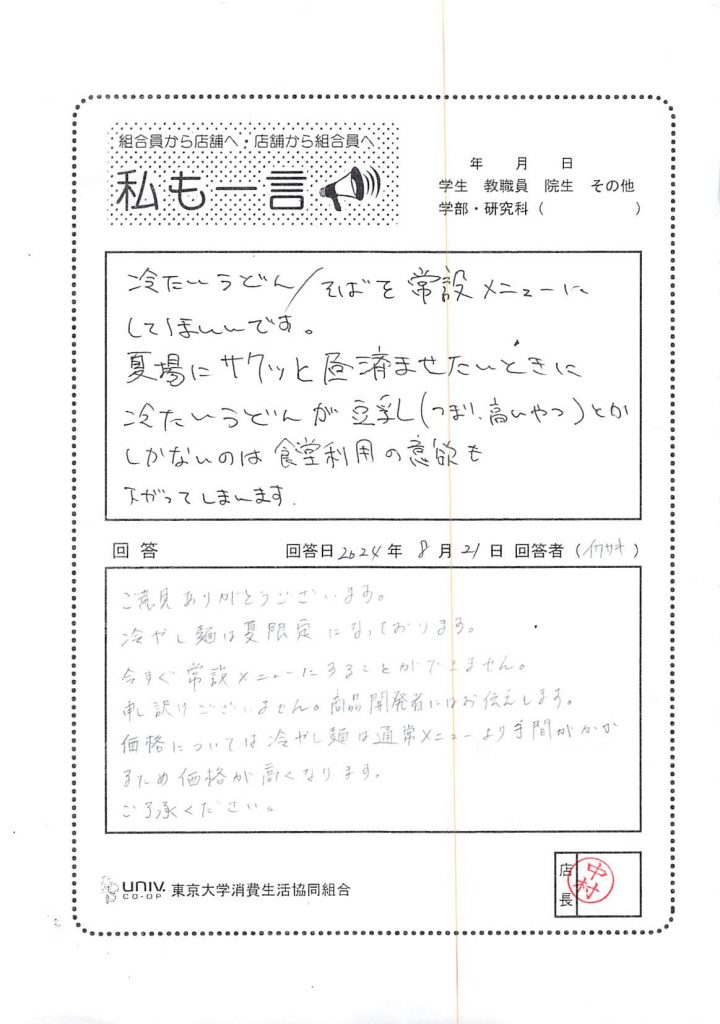 組合員から店舗へ・店舗から組合員へ
私も一言
年 月 日
学生 教職員 院生 その他
学部・研究科（ ）
冷たいうどん/そばを常設メニューに
してほしいです。
夏場にサクッと昼済ませたいときに
冷たいうどんが豆乳(つまり、高いやつ)とか
しかないのは食堂利用の意欲も
下がってしまいます.
回答 回答日2024年 8月21日 回答者（イワサキ）
ご意見ありがとうございます。
冷やし麺は夏限定になっております。
今すぐ常設メニューにすることができません。
申し訳けございません。商品開発者にはお伝えします。
価格については冷やし麺は通常メニューより手間がかか
るため価格が高くなります.
ご了承ください。
UNIV. CO-OP 東京大学消費生活協同組合
店長
中村